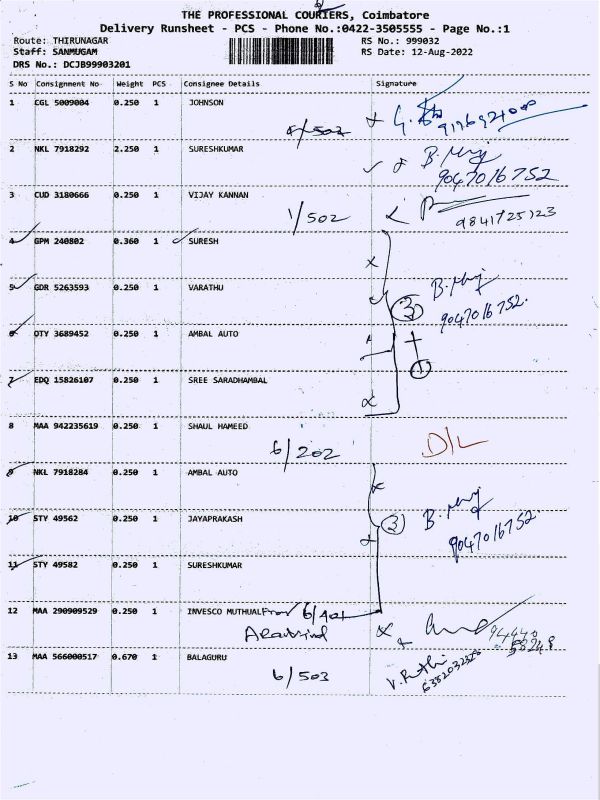 THE PROFESSIONAL COURIERS, Coimbatore
Delivery Runsheet - PCS - Phone No.:0422-3505555 - Page No.:1
Route: THIRUNAGAR RS No.: 999032
Staff: SANMUGAM RS Date: 12-Aug-2022
DRS No.: DCJB99903201
S No Consignment No Weight PCS Consignee Details Signature
1 CGL 5009004 0.250 1 JOHNSON
4/502
2 NKL 7918292 2.250 1 SURESHKUMAR
9047016752
3 CUD 3180666 0.250 1 VIJAY KANNAN
1/502 9841725123
4 GPM 240802 0.360 1 SURESH
5 GDR 5263593 0.250 1 VARATHU
3 9047016752
6 OTY 3689452 0.250 1 AMBAL AUTO
+
1
7 EDQ 15826107 0.250 1 SREE SARADHAMBAL
8 MAA 942235619 0.250 1 SHAUL HAMEED
6/202 D/L
9 NKL 7918284 0.250 1 AMBAL AUTO
10 STY 49562 0.250 1 JAYAPRAKASH
3 9047016752
11 STY 49582 0.250 1 SURESHKUMAR
12 MAA 290909529 0.250 1 INVESCO MUTHUAL 6/401
Aravind
13 MAA 566000517 0.670 1 BALAGURU
6/503